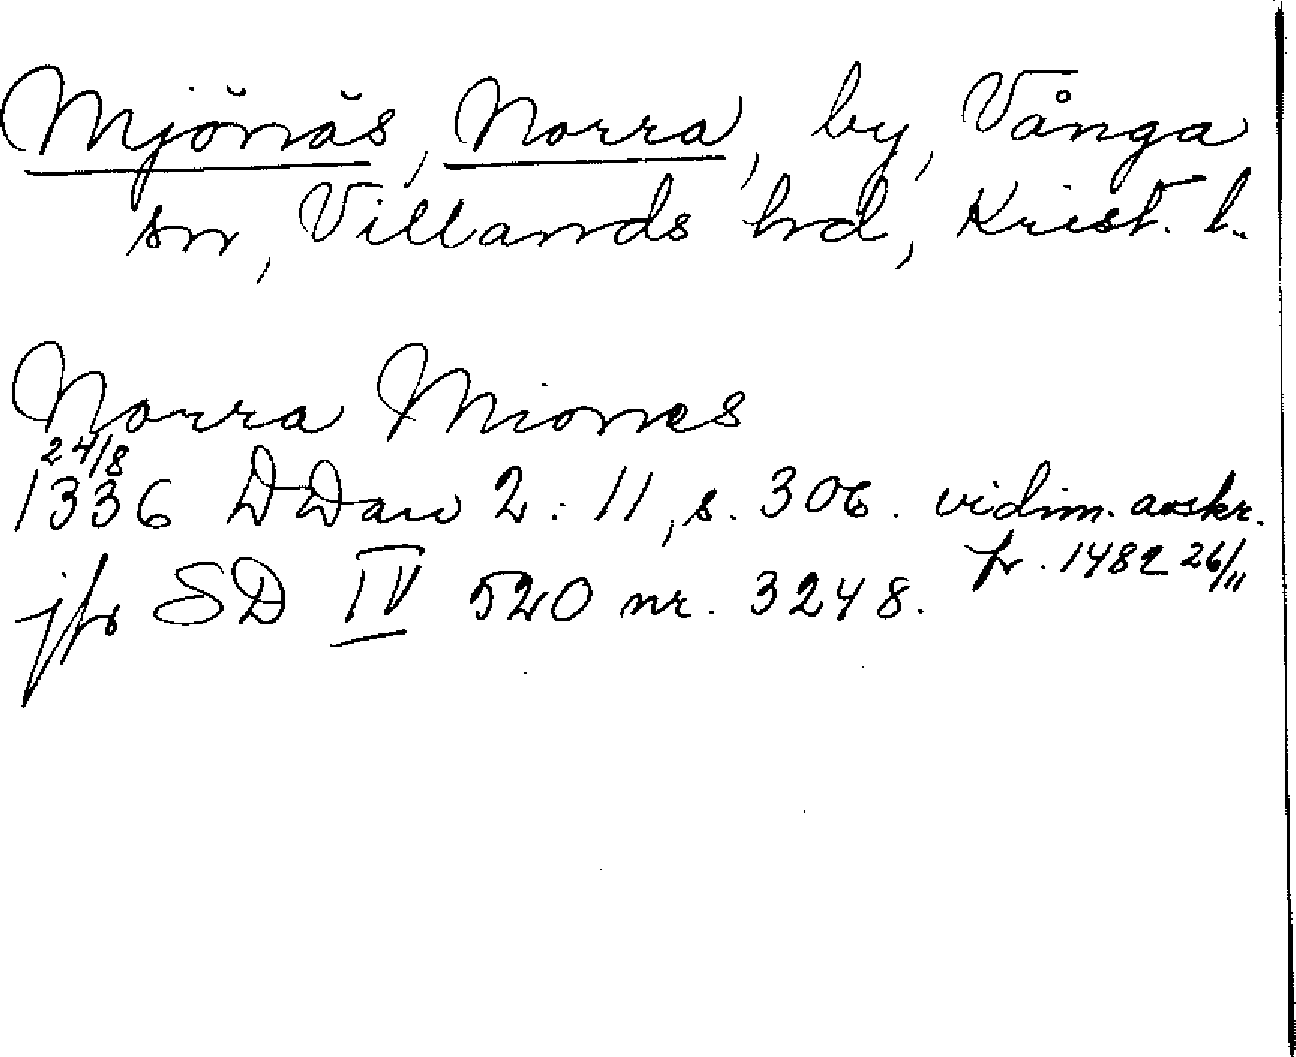 Mjönäs, Norra, by, Vånga
sn, Villands hd, Krist. l.
Norra Miones
24/8
1336 DDan 2:11, s. 306. vidim. avskr.
fr. 1482 26/11
jfr SD IV 520 nr. 3248.